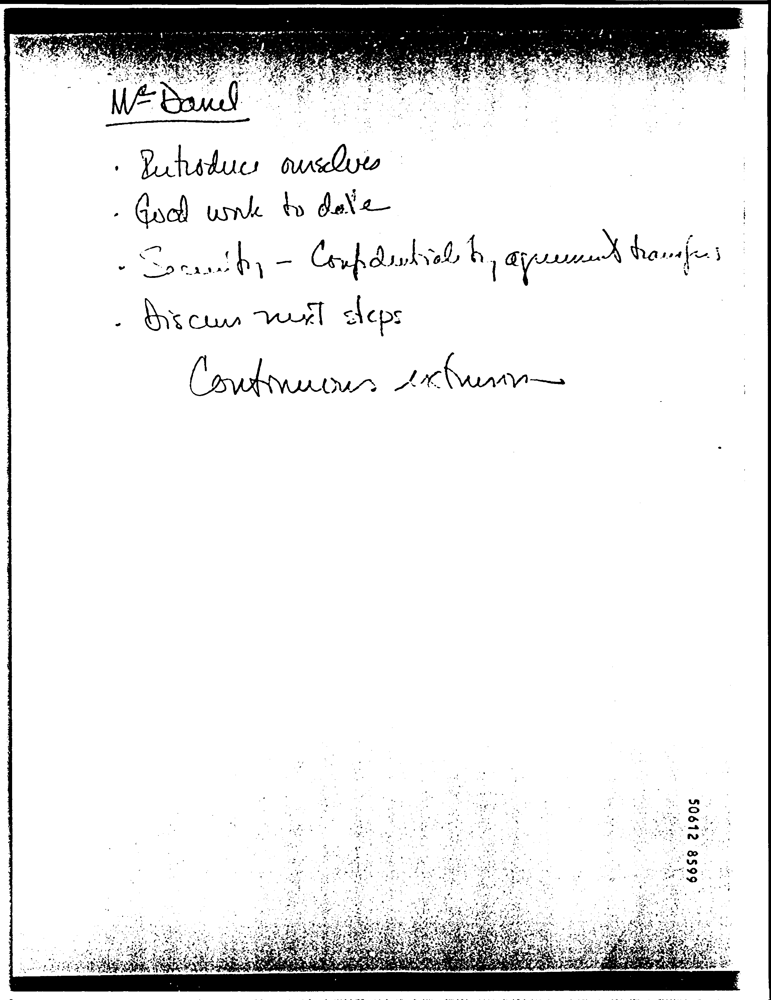 McDanel
· Introduce ourselves
· Good work to date
· Security - Confidentiality agreement transfers
· Discuss next steps
Continuous extrusion
50612 8599